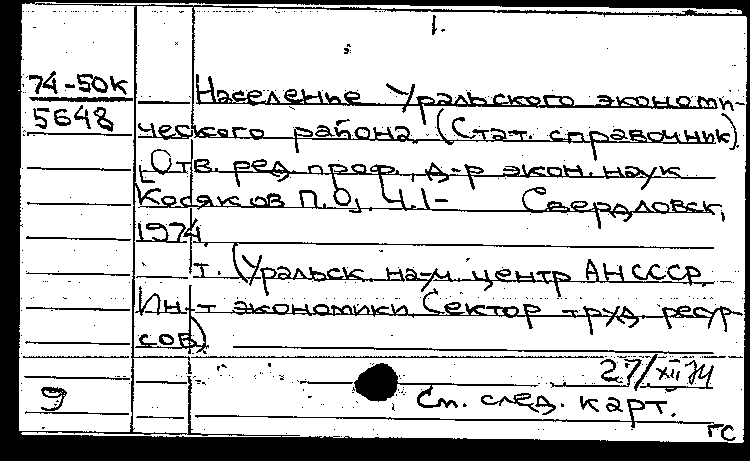 1.
74-50к
5648
Население Уральского экономи-
ческого района. (Стат. справочник).
[Отв. ред. проф., д-р экон. наук
Косяков П.О.]. Ч.1- Свердловск,
1974.
т. (Уральск. на-ч. центр АН СССР.
Ин-т экономики. Сектор труд. ресур-
сов)
27/XII 74
9
См. след. карт.
ГС